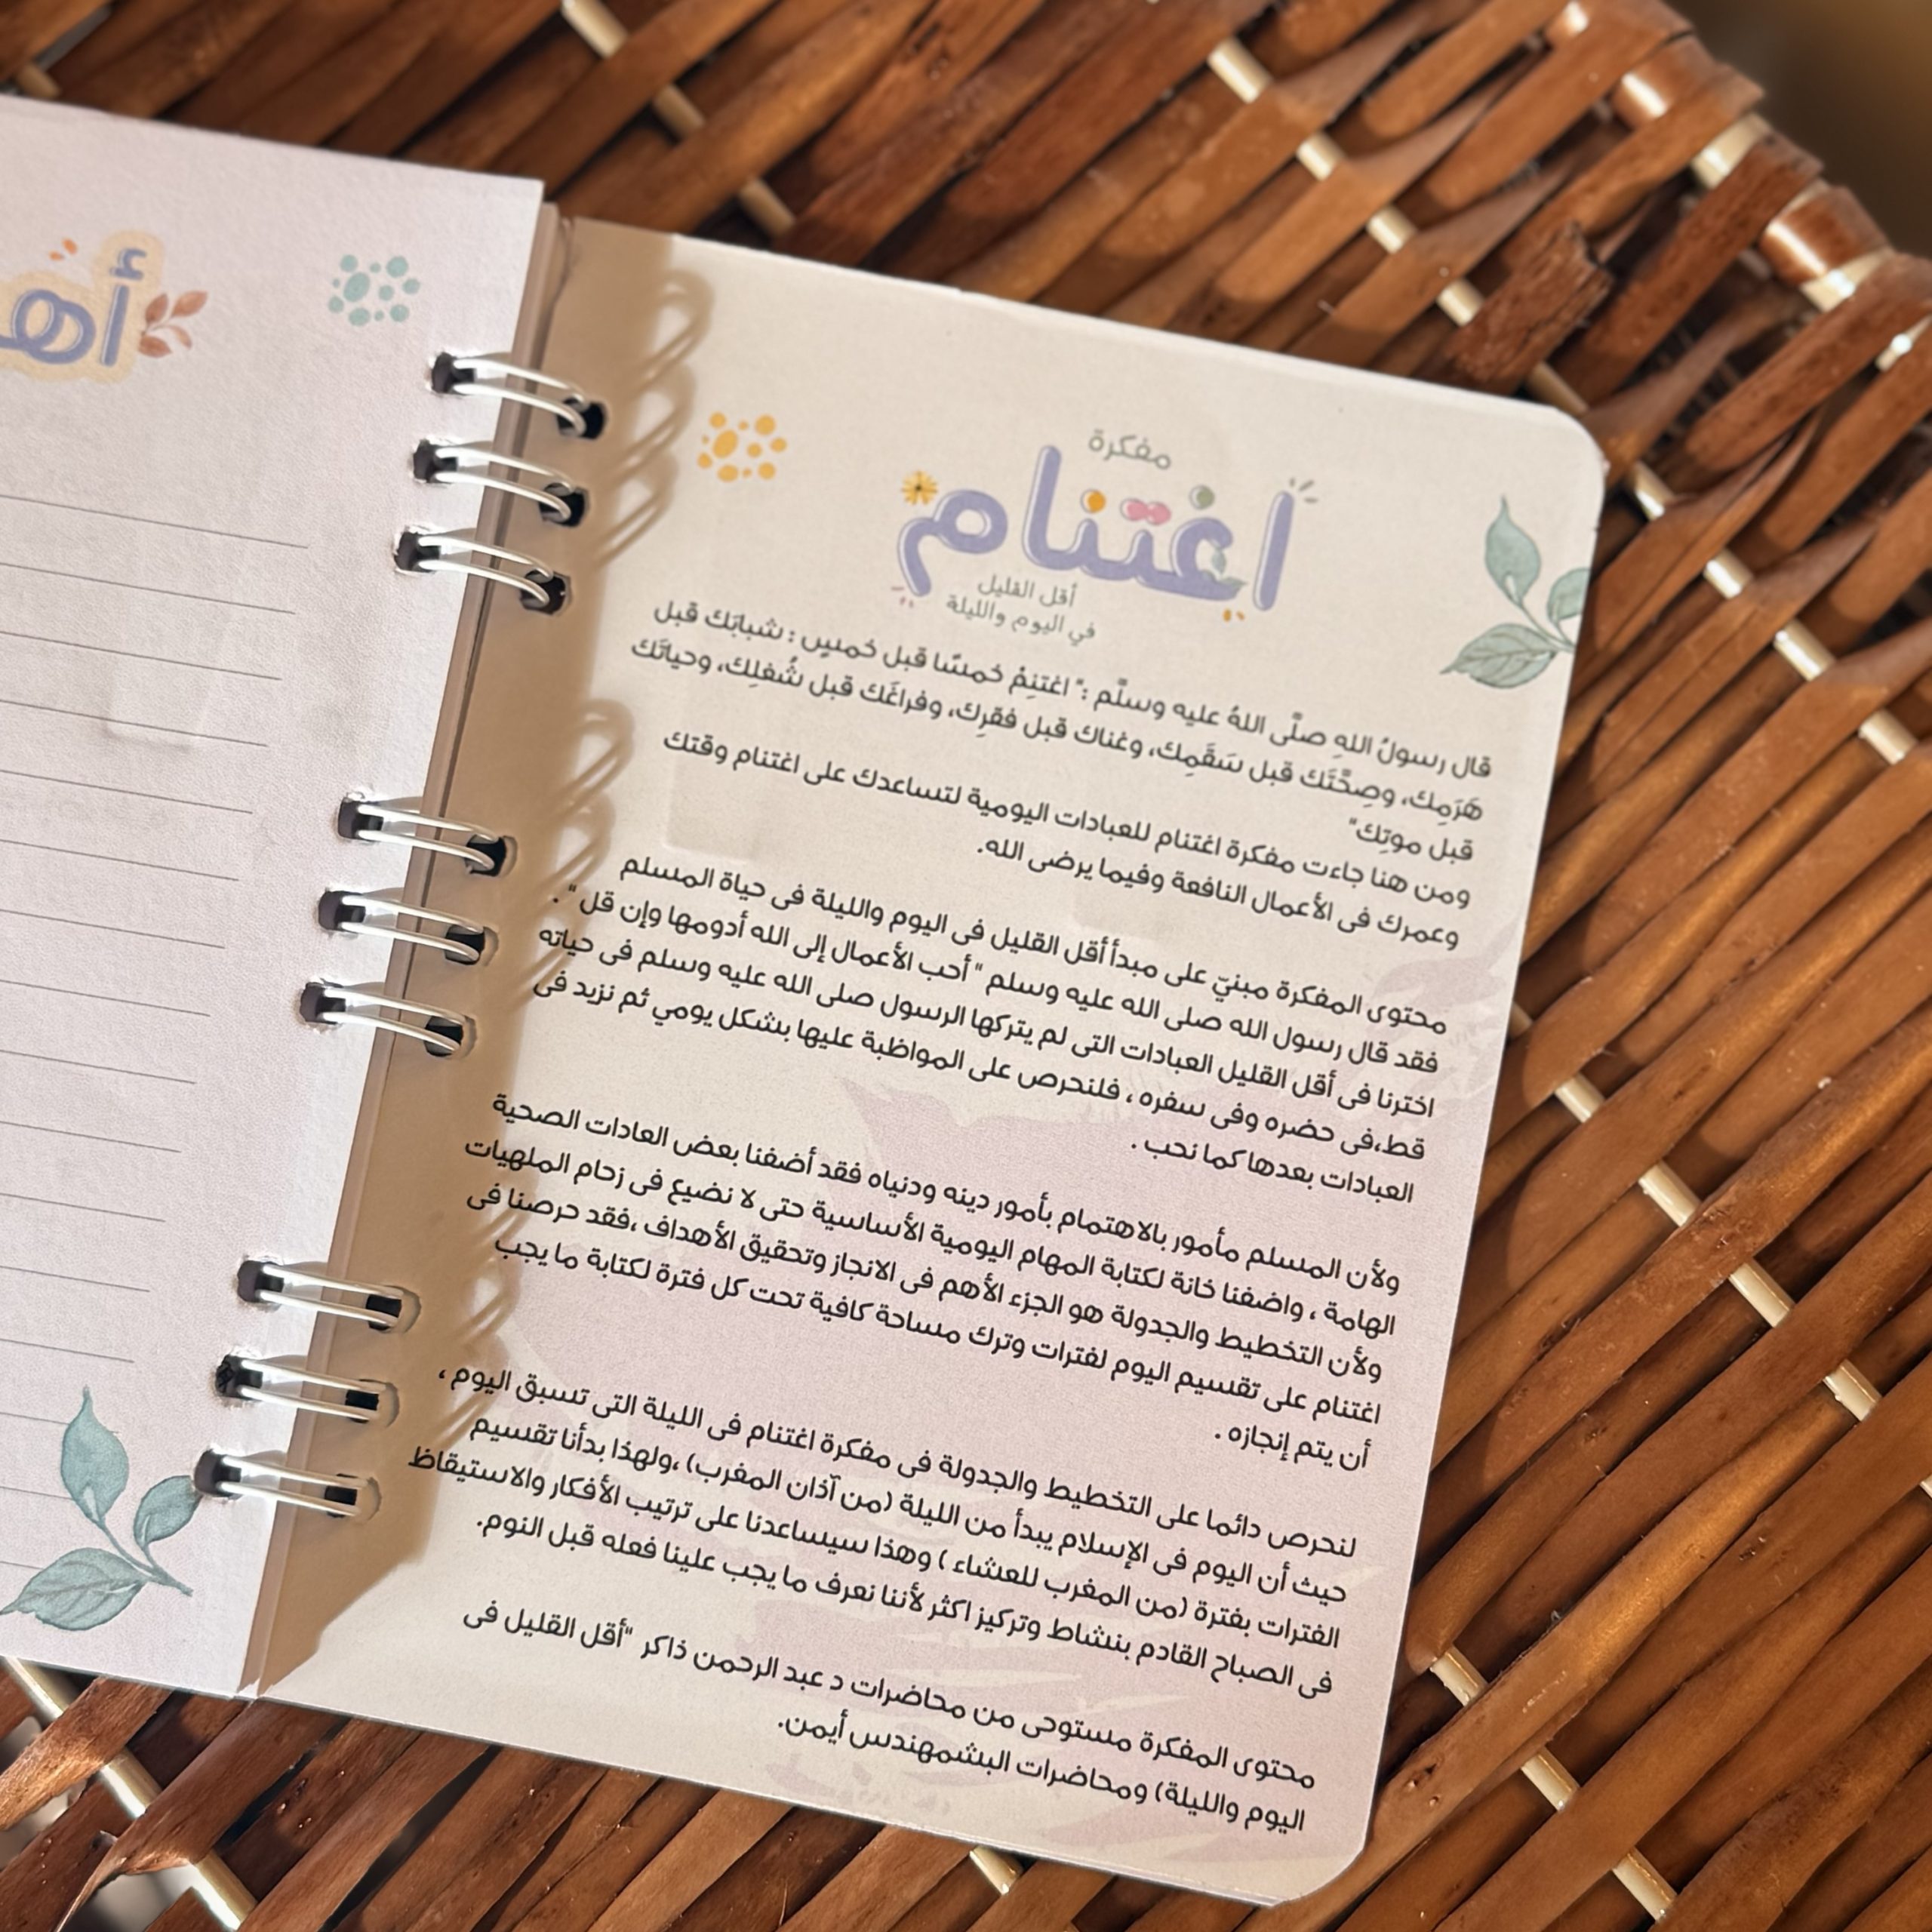 مفكرة
اغتنام
أقل القليل
في اليوم والليلة
قال رسولُ اللهِ صلَّى اللهُ عليه وسلَّم :" اغتنِمْ خمسًا قبل خمسٍ : شبابَك قبل
هَرَمِك، وصِحَّتَك قبل سَقَمِك، وغناك قبل فقرِك، وفراغَك قبل شُغلِك، وحياتَك
قبل موتِك"
ومن هنا جاءت مفكرة اغتنام للعبادات اليومية لتساعدك على اغتنام وقتك
وعمرك فى الأعمال النافعة وفيما يرضى الله.
محتوى المفكرة مبنيّ على مبدأ أقل القليل فى اليوم والليلة فى حياة المسلم
فقد قال رسول الله صلى الله عليه وسلم " أحب الأعمال إلى الله أدومها وإن قل" .
اخترنا فى أقل القليل العبادات التى لم يتركها الرسول صلى الله عليه وسلم فى حياته
قط،فى حضره وفى سفره ، فلنحرص على المواظبة عليها بشكل يومي ثم نزيد فى
العبادات بعدها كما نحب .
ولأن المسلم مأمور بالاهتمام بأمور دينه ودنياه فقد أضفنا بعض العادات الصحية
الهامة ، واضفنا خانة لكتابة المهام اليومية الأساسية حتى لا نضيع فى زحام الملهيات
ولأن التخطيط والجدولة هو الجزء الأهم فى الانجاز وتحقيق الأهداف ،فقد حرصنا فى
اغتنام على تقسيم اليوم لفترات وترك مساحة كافية تحت كل فترة لكتابة ما يجب
أن يتم إنجازه .
لنحرص دائما على التخطيط والجدولة فى مفكرة اغتنام فى الليلة التى تسبق اليوم ،
حيث أن اليوم فى الإسلام يبدأ من الليلة (من آذان المغرب) ،ولهذا بدأنا تقسيم
الفترات بفترة (من المغرب للعشاء ) وهذا سيساعدنا على ترتيب الأفكار والاستيقاظ
فى الصباح القادم بنشاط وتركيز اكثر لأننا نعرف ما يجب علينا فعله قبل النوم.
محتوى المفكرة مستوحى من محاضرات د عبد الرحمن ذاكر "أقل القليل فى
اليوم والليلة) ومحاضرات البشمهندس أيمن.